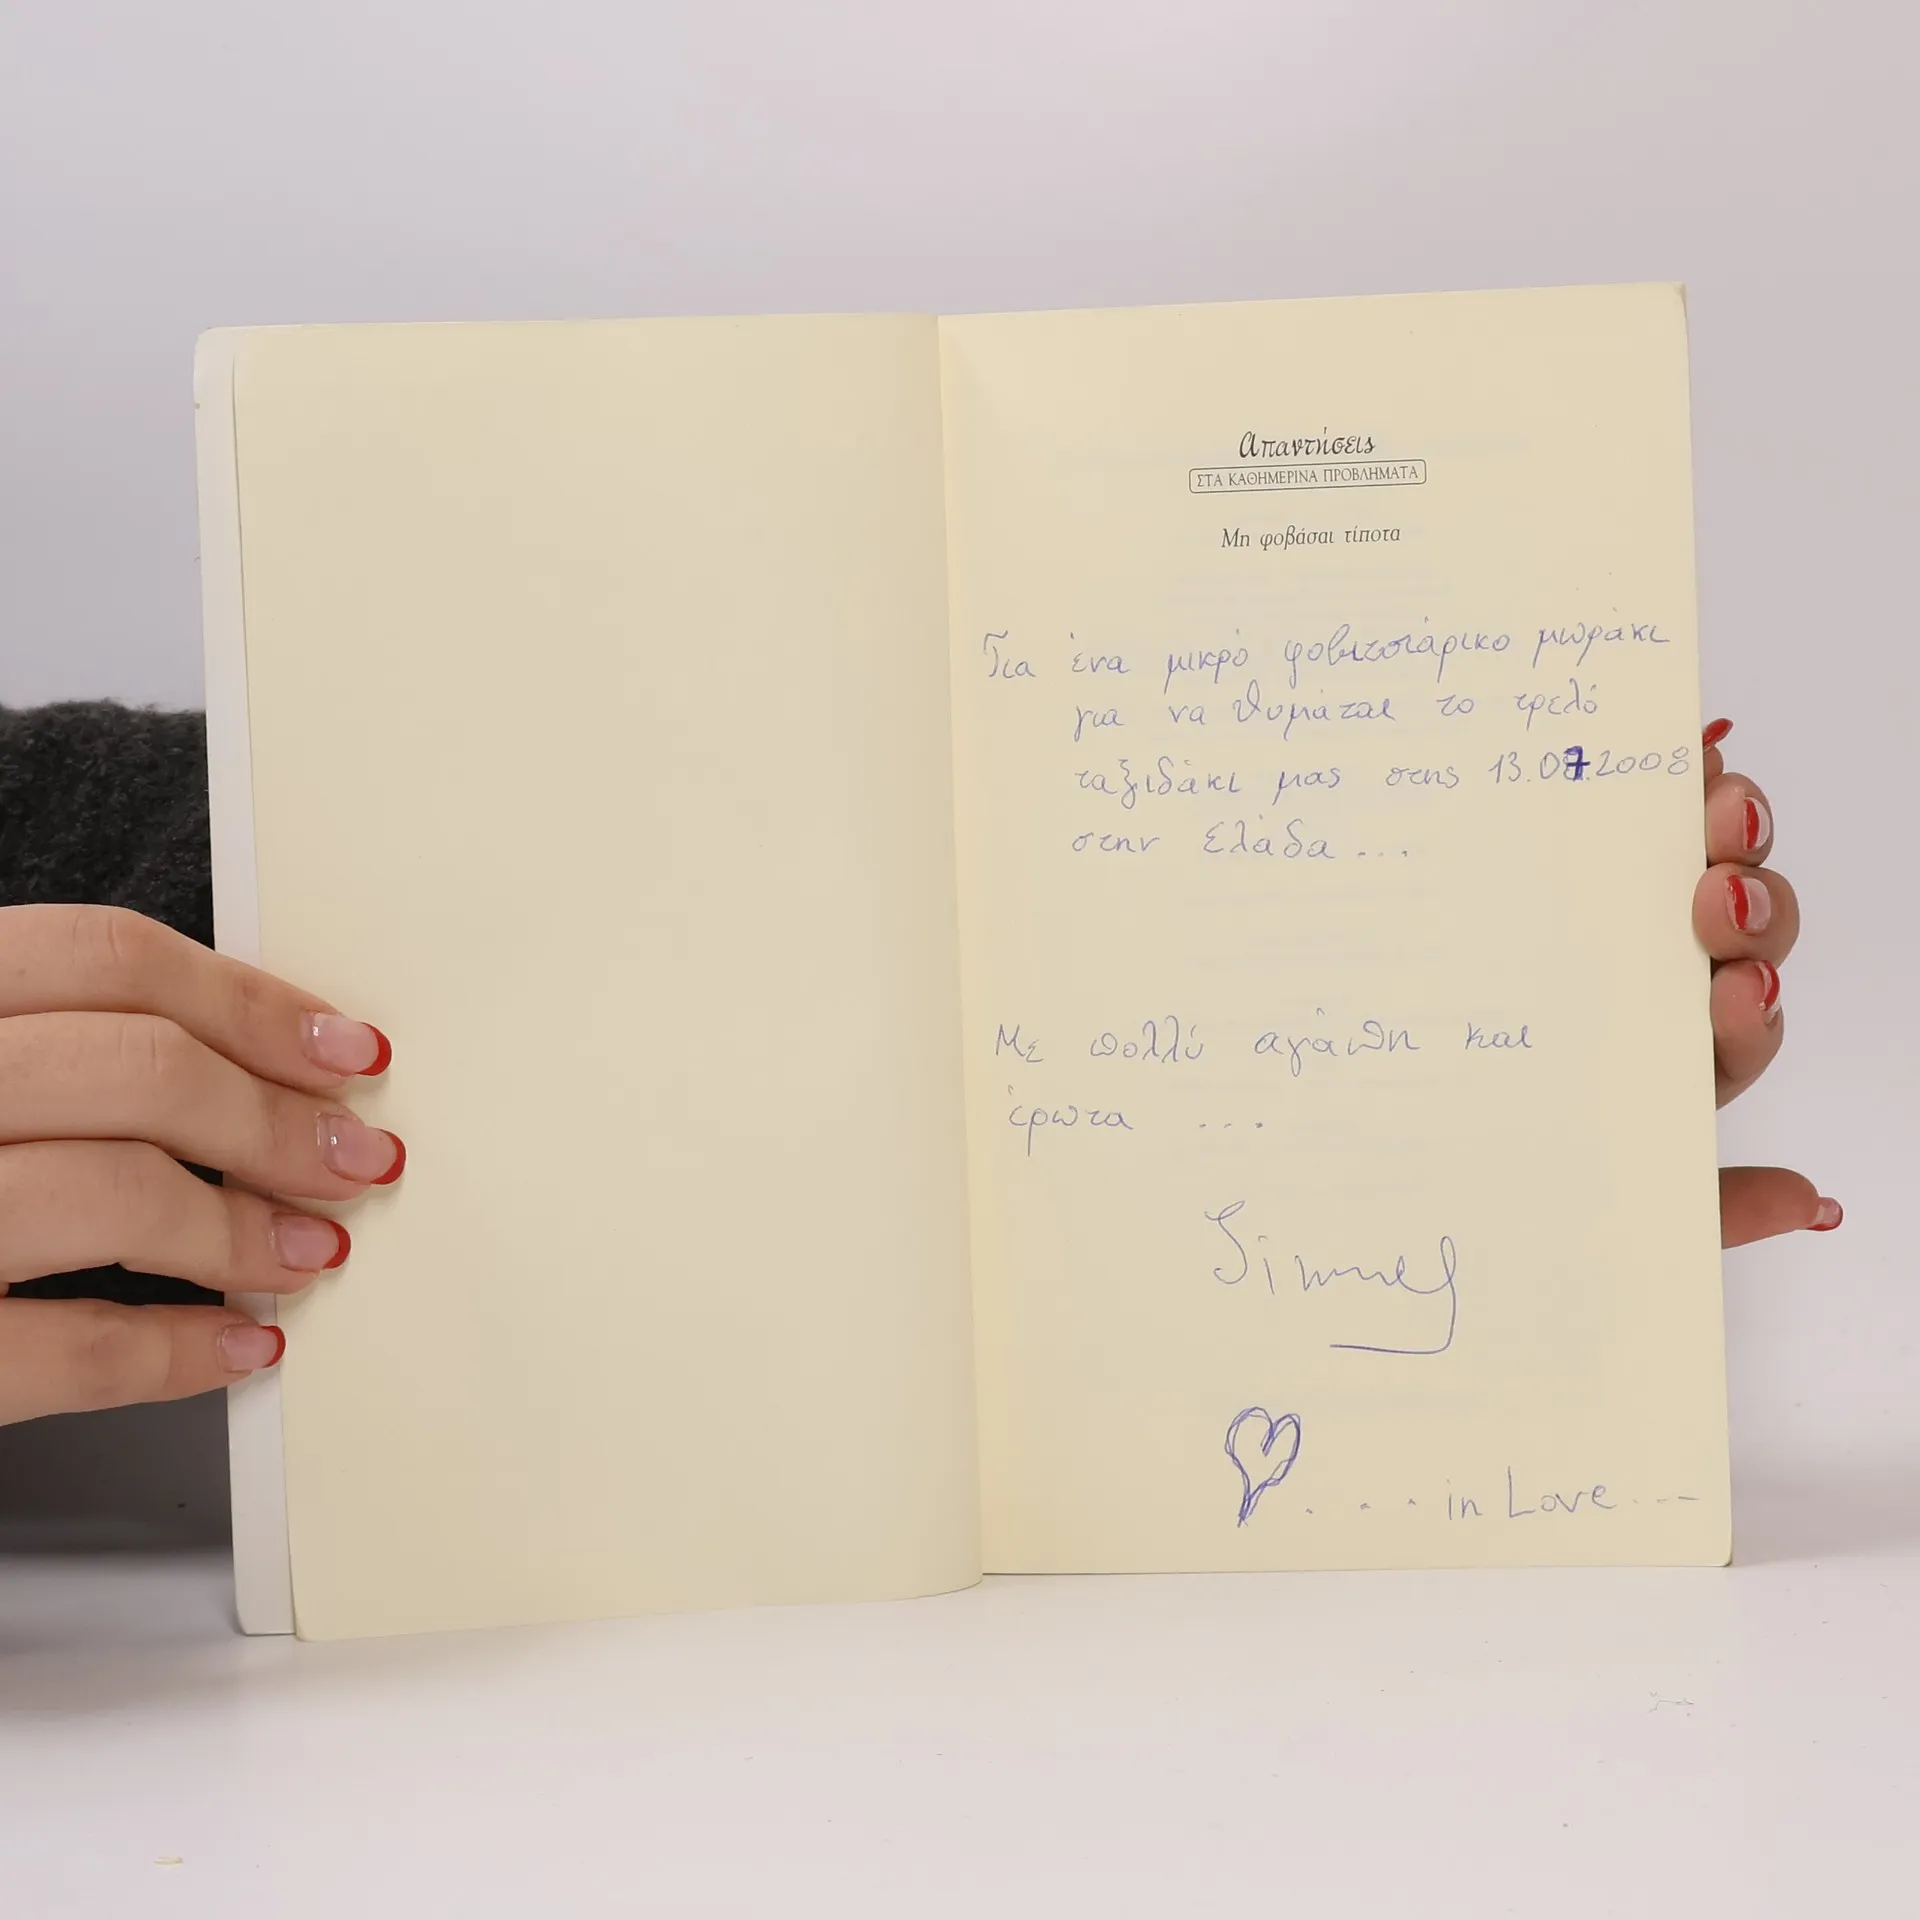 Απαντήσεις
ΣΤΑ ΚΑΘΗΜΕΡΙΝΑ ΠΡΟΒΛΗΜΑΤΑ
Μη φοβάσαι τίποτα
Για ένα μικρό φοβιτσιάρικο μωράκι
για να θυμάται το τρελό
ταξιδάκι μας στης 13.07.2008
στην Ελάδα...
Με πολλύ αγάπη και
έρωτα ...
.... in Love...